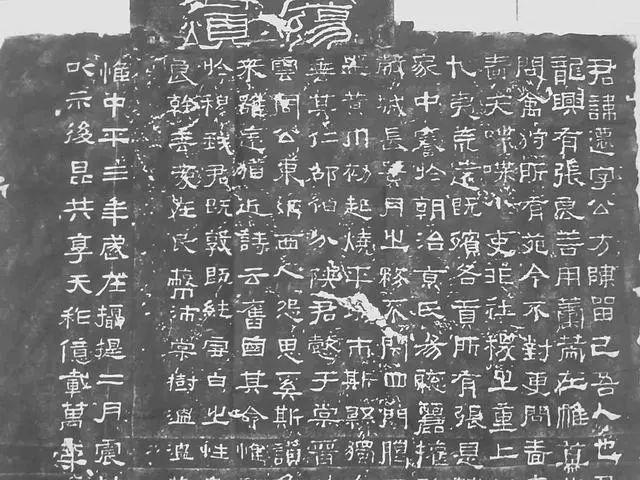 蕩
頌
君諱遷字公方陳留己吾人也
龍興有張良善用籌策在帷幕
問禽狩所有苑令不對更問嗇
嗇夫喋喋小吏非社稷之重上
九夷荒遠既殯各貢所有張是
家中謇於朝治京氏易聰麗權
穀城長蠶月之務不閉四門臘
黃巾初起燒平城市斯縣獨
垂其仁邵伯分陝君懿于棠晉
雲周公東征西人怨思奚斯讚
來雖遠猶近詩云舊國其命惟
於穆我君既敦既純雪白之性
良幹垂愛在民蔽沛棠樹溫溫
惟中平三年歲在攝提二月震
以示後昆共享天祚億載萬年